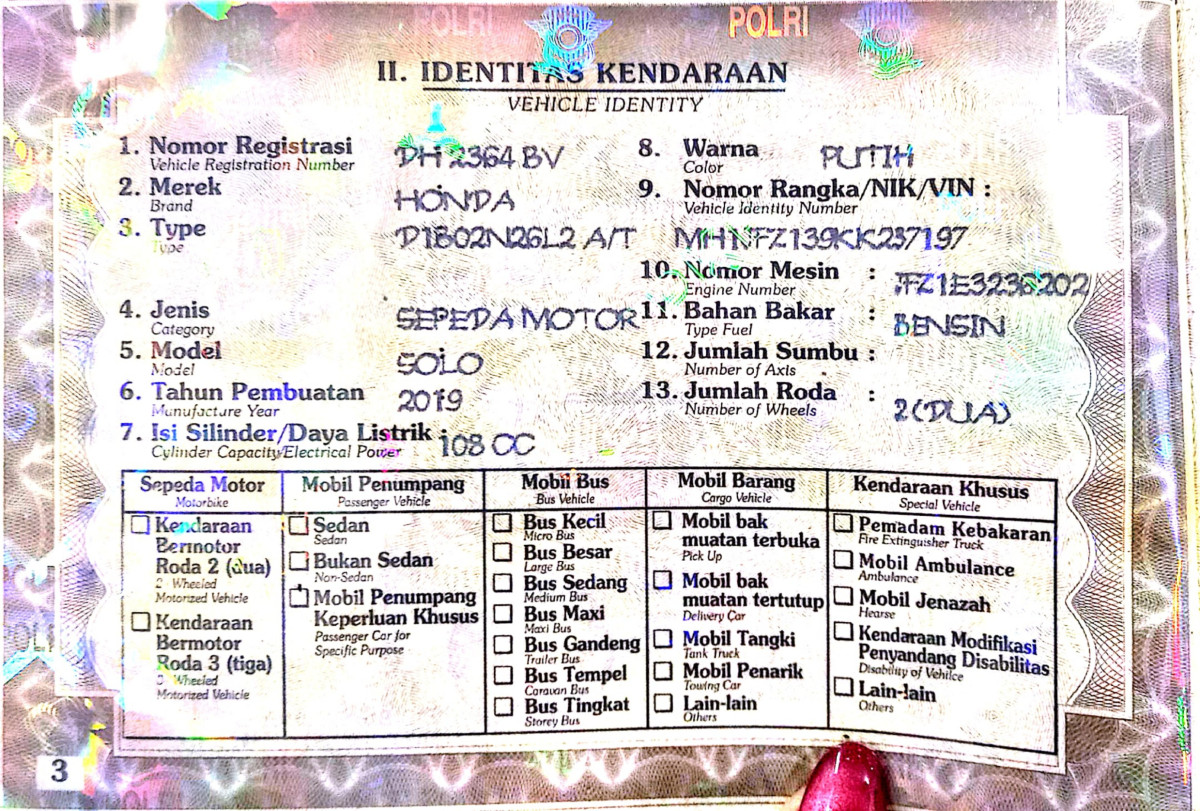 POLRI POLRI
II. IDENTITAS KENDARAAN
VEHICLE IDENTITY
1. Nomor Registrasi DH 2364 BV
Vehicle Registration Number
2. Merek HONDA
Brand
3. Type D1B02N26L2 A/T
Type
4. Jenis SEPEDA MOTOR
Category
5. Model SOLO
Model
6. Tahun Pembuatan 2019
Manufacture Year
7. Isi Silinder/Daya Listrik : 108 CC
Cylinder Capacity/Electrical Power
8. Warna PUTIH
Color
9. Nomor Rangka/NIK/VIN :
Vehicle Identity Number
MH1JFZ139KK237197
10. Nomor Mesin : JFZ1E3236202
Engine Number
11. Bahan Bakar : BENSIN
Type Fuel
12. Jumlah Sumbu :
Number of Axis
13. Jumlah Roda : 2 (DUA)
Number of Wheels
Sepeda Motor
Motorbike
Kendaraan
Bermotor
Roda 2 (dua)
2 Wheeled
Motorized Vehicle
Kendaraan
Bermotor
Roda 3 (tiga)
3 Wheeled
Motorized Vehicle
Mobil Penumpang
Passenger Vehicle
Sedan
Sedan
Bukan Sedan
Non-Sedan
Mobil Penumpang
Keperluan Khusus
Passenger Car for
Specific Purpose
Mobil Bus
Bus Vehicle
Bus Kecil
Micro Bus
Bus Besar
Large Bus
Bus Sedang
Medium Bus
Bus Maxi
Maxi Bus
Bus Gandeng
Trailer Bus
Bus Tempel
Caravan Bus
Bus Tingkat
Storey Bus
Mobil Barang
Cargo Vehicle
Mobil bak
muatan terbuka
Pick Up
Mobil bak
muatan tertutup
Delivery Car
Mobil Tangki
Tank Truck
Mobil Penarik
Towing Car
Lain-lain
Others
Kendaraan Khusus
Special Vehicle
Pemadam Kebakaran
Fire Extinguisher Truck
Mobil Ambulance
Ambulance
Mobil Jenazah
Hearse
Kendaraan Modifikasi
Penyandang Disabilitas
Disability of Vehilce
Lain-lain
Others
3